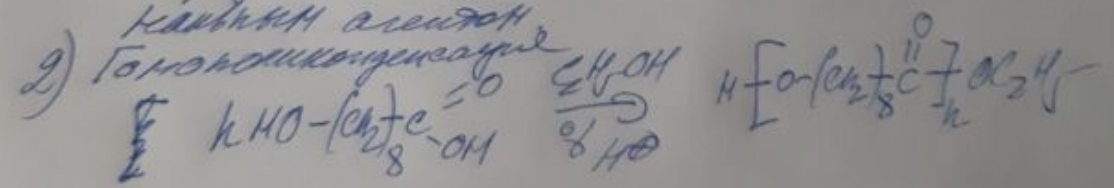 агентом
2) Гомополиконденсация
n HO-(CH2)8-C=O -OH C2H5OH H⊕ H-[O-(CH2)8-C(=O)-]n OC2H5